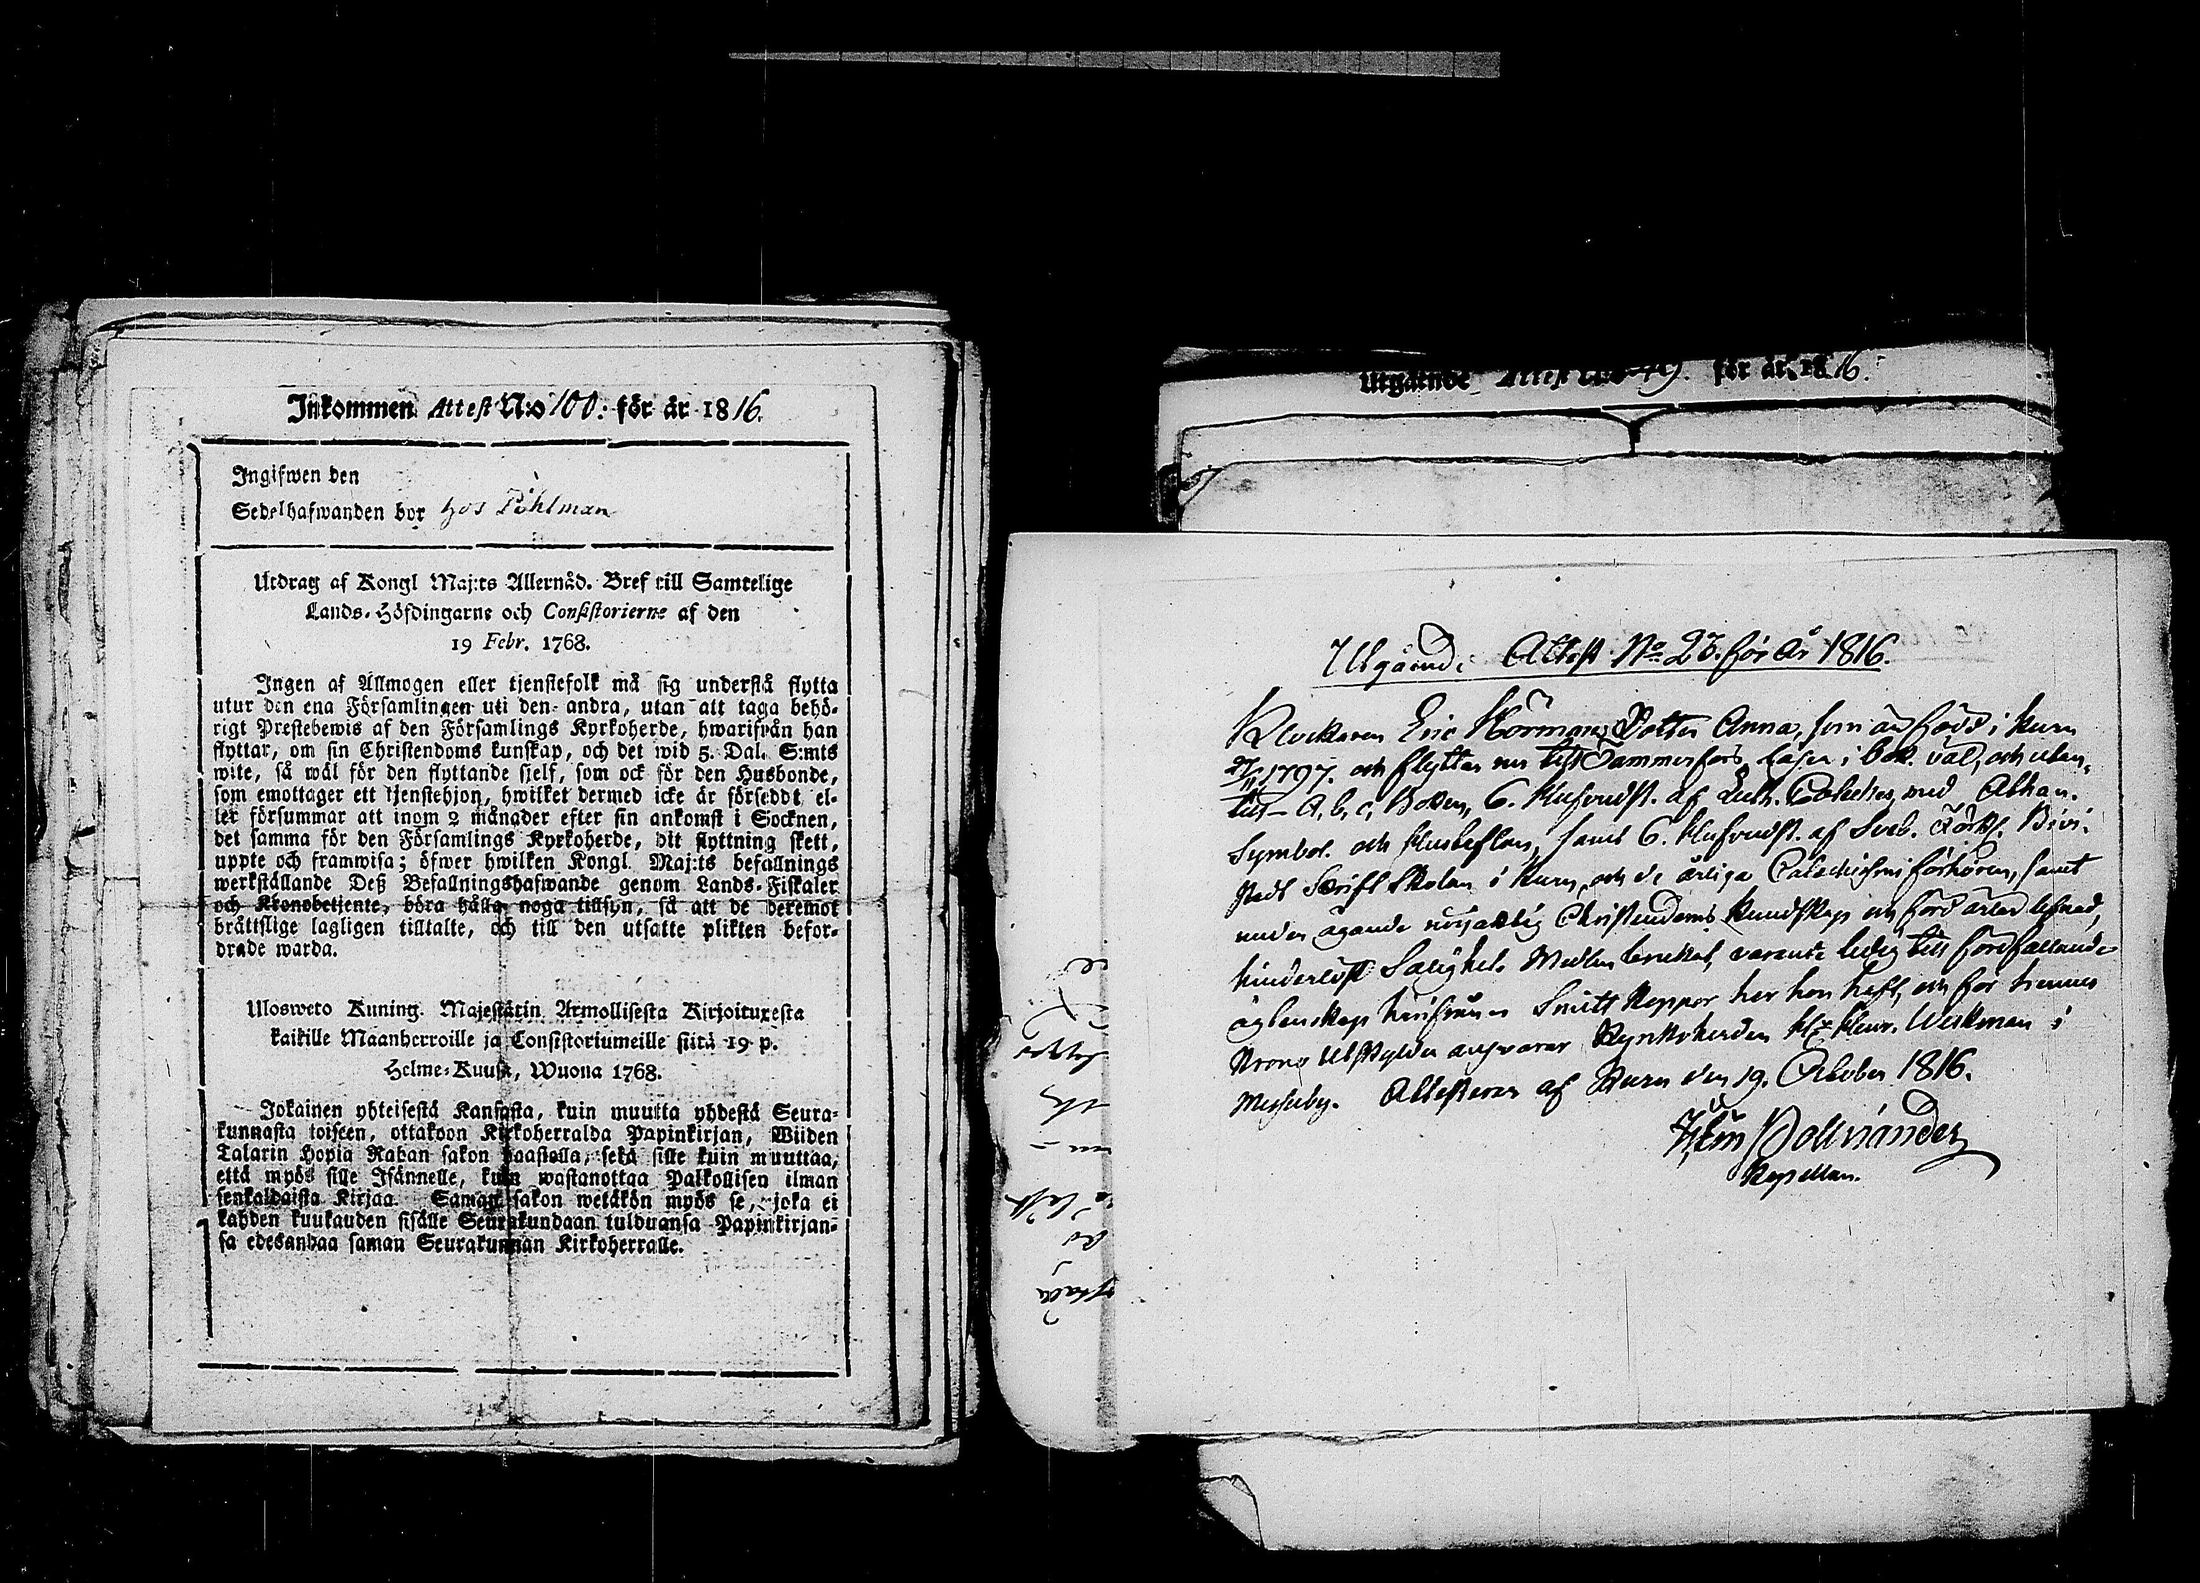 Inkommen Attest N:o 100. för år 1816.
Ingifwen den
Sedelhafwanden bor hos Pihlman
Utdrag af Kongl Maj:ts Allernåd. Bref till Samtelige
Lands-Höfdingarne och Consistorierne af den
19 Febr. 1768.
Ingen af Allmogen eller tjenstefolk må sig understå flytta
utur den ena Församlingen uti den andra, utan att taga behö-
rigt Prestebewis af den Församlings Kyrkoherde, hwarifrån han
flyttar, om sin Christendoms kunskap, och det wid 5. Dal. S:mts
wite, så wäl för den flyttande sjelf, som ock för den Husbonde,
som emottager ett tjenstehjon, hwilket dermed icke är förseddt el-
ler försummar att inom 2 månader efter sin ankomst i Socknen,
det samma för den Församlings Kyrkoherde, dit flyttning skett,
uppte och framwisa; öfwer hwilken Kongl. Maj:ts befallnings
werkställande Deß Befallningshafwande genom Lands-Fiskaler
och Kronobetjente, böra hålla noga tillsyn, så att de deremot
bråttslige lagligen tilltalte, och till den utsatte plikten befor-
drade warda.
Ulosweto Kuning. Majestätin Armollisesta Kirjoituxesta
kaikille Maanherroille ja Consistoriumeille siitä 19 p.
Helme-Kuusa, Wuona 1768.
Jokainen yhteisestä Kansasta, kuin muutta yhdestä Seura-
kunnasta toiseen, ottakoon Kirkoherralda Papinkirjan, Wiiden
Talarin Hopia Rahan sakon haastolla, sekä sille kuin muuttaa,
että myös sille Isännelle, kuin wastanottaa Palkollisen ilman
senkaldaista Kirjaa. Saman sakon wetäkön myös se, joka ei
kahden kuukauden sisälle Seurakundaan tulduansa Papinkirjan-
sa edesanbaa saman Seurakunnan Kirkoherralle.
Utgående Attest N:o 19. för år 1816.
Utgående Attest No 23. för År 1816.
Klockaren Eric Hörmans Dotter Anna, som är född i Kuru
27/11 1797. och flyttar nu till Tammerfors, läser i bok väl, och utan-
till A, b, c, Boken, 6. Hufvudst. af Luth. Cateches med Athan.
Symbol. och Hustaflan, samt 6. Hufvudst. af Sveb. Förkl. Bivi-
stadt Skriftskolan i Kuru, och de årliga Catechismi förhören, samt
under ägande nöjaktig Christendoms Kundskap och förd ärlig lefnad,
hinderlöst Salighets Medlen brukat, varande ledig till förefallande
ägtenskap härifrån. Smitt Koppor har hon haft, och för hennes
Krono Utskylder answarar Kyrkoherden Hr Henr. Wirkman i
Messuby. Attesterar af Kuru den 19. October 1816.
Kapellan.